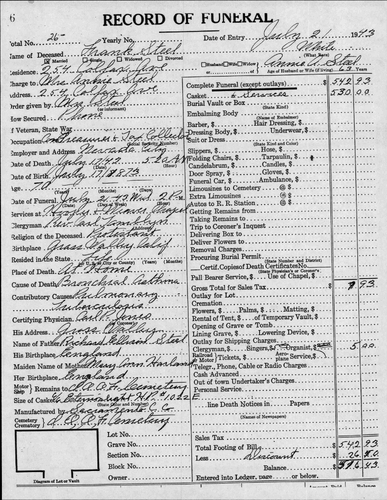 6
RECORD OF FUNERAL
Total No. 26 Yearly No. Date of Entry July 21 1943
Name of Deceased Frank Steel White
Married (What Race)
Residence: 254 Colfax Ave Annie A. Steel
Charge to Mrs Annie Steel Age of Husband or Wife (if living) 63 Years
Address 254 Colfax Ave
Order given by Mrs Steel
How Secured Phone
If Veteran, State War
Occupation Treasurer & Tax Collector
Employer and Address Nevada City
Date of Death July
Date of Birth July 17 1873
Age 70
Date of Funeral July
Services at
Clergyman Rev
Religion of the Deceased Protestant
Birthplace Grass Valley Calif
Resided in the State Life
Place of Death At Home
Cause of Death Bronchial Asthma
Contributory Causes Pulmonary
Certifying Physician Carl P. Jones
His Address Grass Valley
Name of Father Richard Steel
His Birthplace England
Maiden Name of Mother Mary Ann
Her Birthplace England
Remains to I.O.O.F. Cemetery
Size of Casket
Manufactured by Sacramento C. Co
Cemetery
Crematory I.O.O.F. Cemetery
Lot No.
Grave No.
Section No.
Block No.
Diagram of Lot or Vault
Complete Funeral (except outlays) 542 93
Casket & Services 530 00
Burial Vault or Box
(State Kind)
Embalming Body
(State Kind)
Barber, $ Hair Dressing, $
Dressing Body, $ Underwear, $
Suit or Dress
(State Kind)
Slippers, $ Hose, $
Folding Chairs, $ Tarpaulin, $
Candelabrum, $ Candles, $
Door Spray, $ Gloves, $
Funeral Car, $ Ambulance, $
Limousines to Cemetery @ $
Extra Limousines @ $
Autos to R.R. Station @ $
Getting Remains from
Taking Remains to
Trip to Coroner's Inquest
Delivering Box to
Deliver Flowers to
Removal Charges
Procuring Burial Permit
(State Number and District)
Certif. Copies of Death Certificates No.
(State Physician's or Coroner's)
Pall Bearer Service, $ Use of Chapel, $
Gross Total for Sales Tax 7 93
Outlay for Lot
Cremation
Flowers, $ Palms, $ Matting, $
Rental of Tent, $ of Temporary Vault, $
Opening of Grave or Tomb
Lining Grave, $ Lowering Device, $
Outlay for Shipping Charges
Clergyman, $ Singers, $ Organist, $ 5 00
Railroad Motor Tickets, $ Aeroplane Service, $
Telegr., Phone, Cable or Radio Charges
Cash Advanced
Out of town Undertaker's Charges
Personal Service
line Death Notices in Papers
(Names of Newspapers)
Sales Tax
Total Footing of Bill 542 93
Less Discount
Balance
Entered into Ledger, page or below.